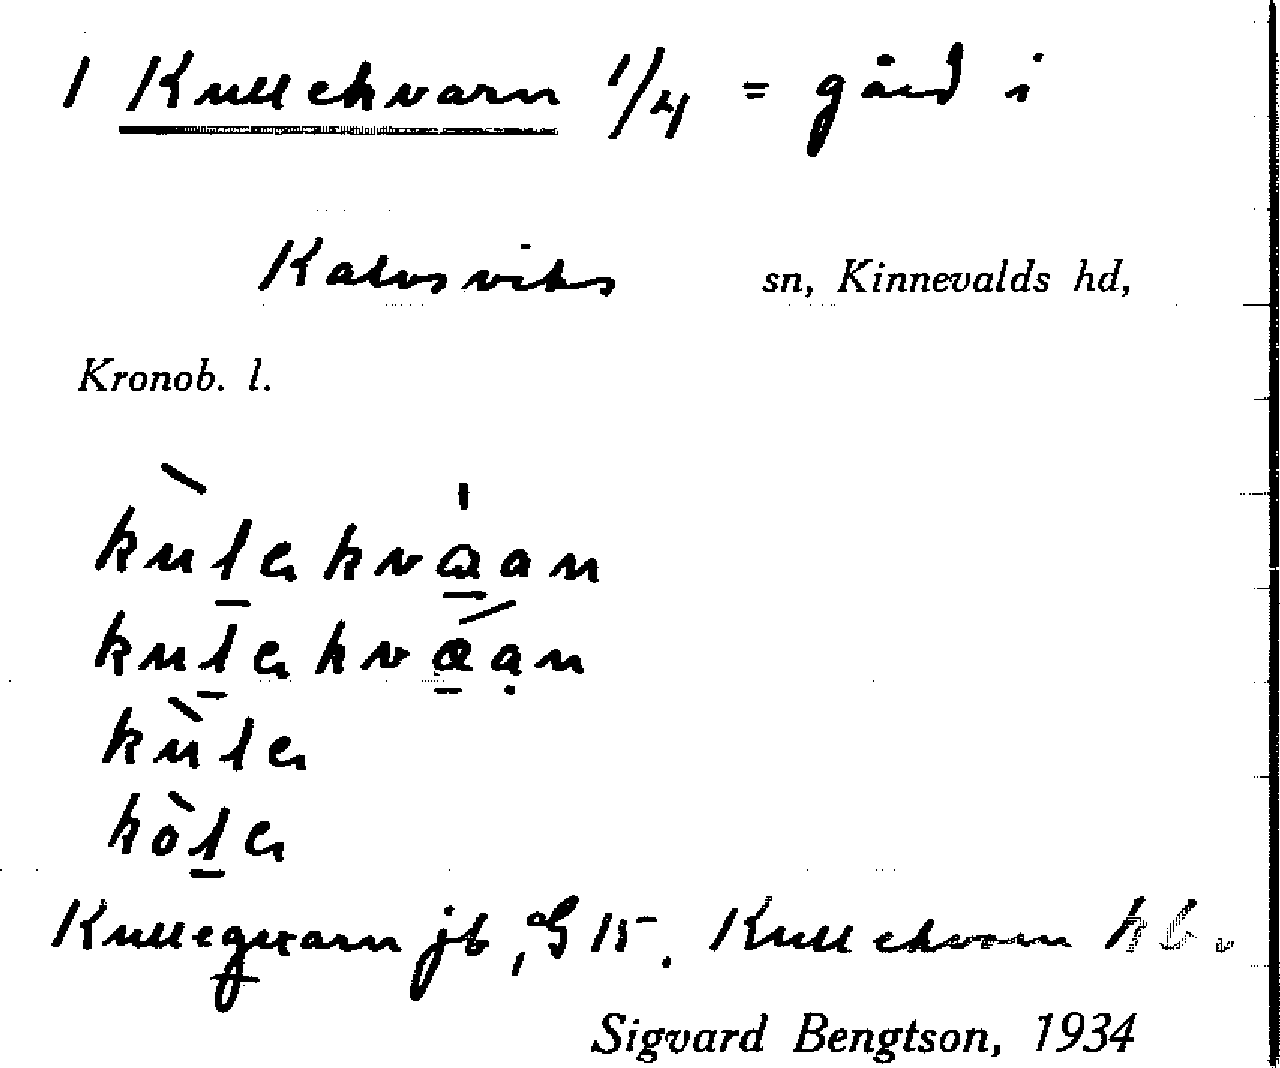 1 Kullekvarn 1/4 = gård i
Kalvsviks sn, Kinnevalds hd,
Kronob. l.
kùlək vɑ́an
kulək vɑ́ạn
kùlə
kòlə
Kulleqvarn jb, GS 15. Kullekvarn kb.
Sigvard Bengtson, 1934